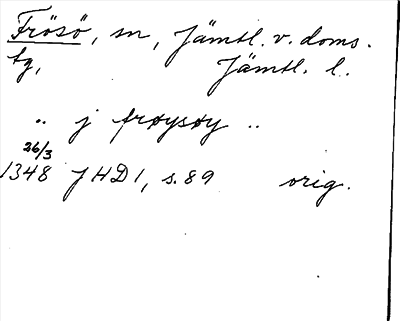 Frösö, sn, Jämtl. v. doms.
tg, Jämtl. l.
.. j frøysøy ..
26/3
1348 JHD 1, s. 89 orig.